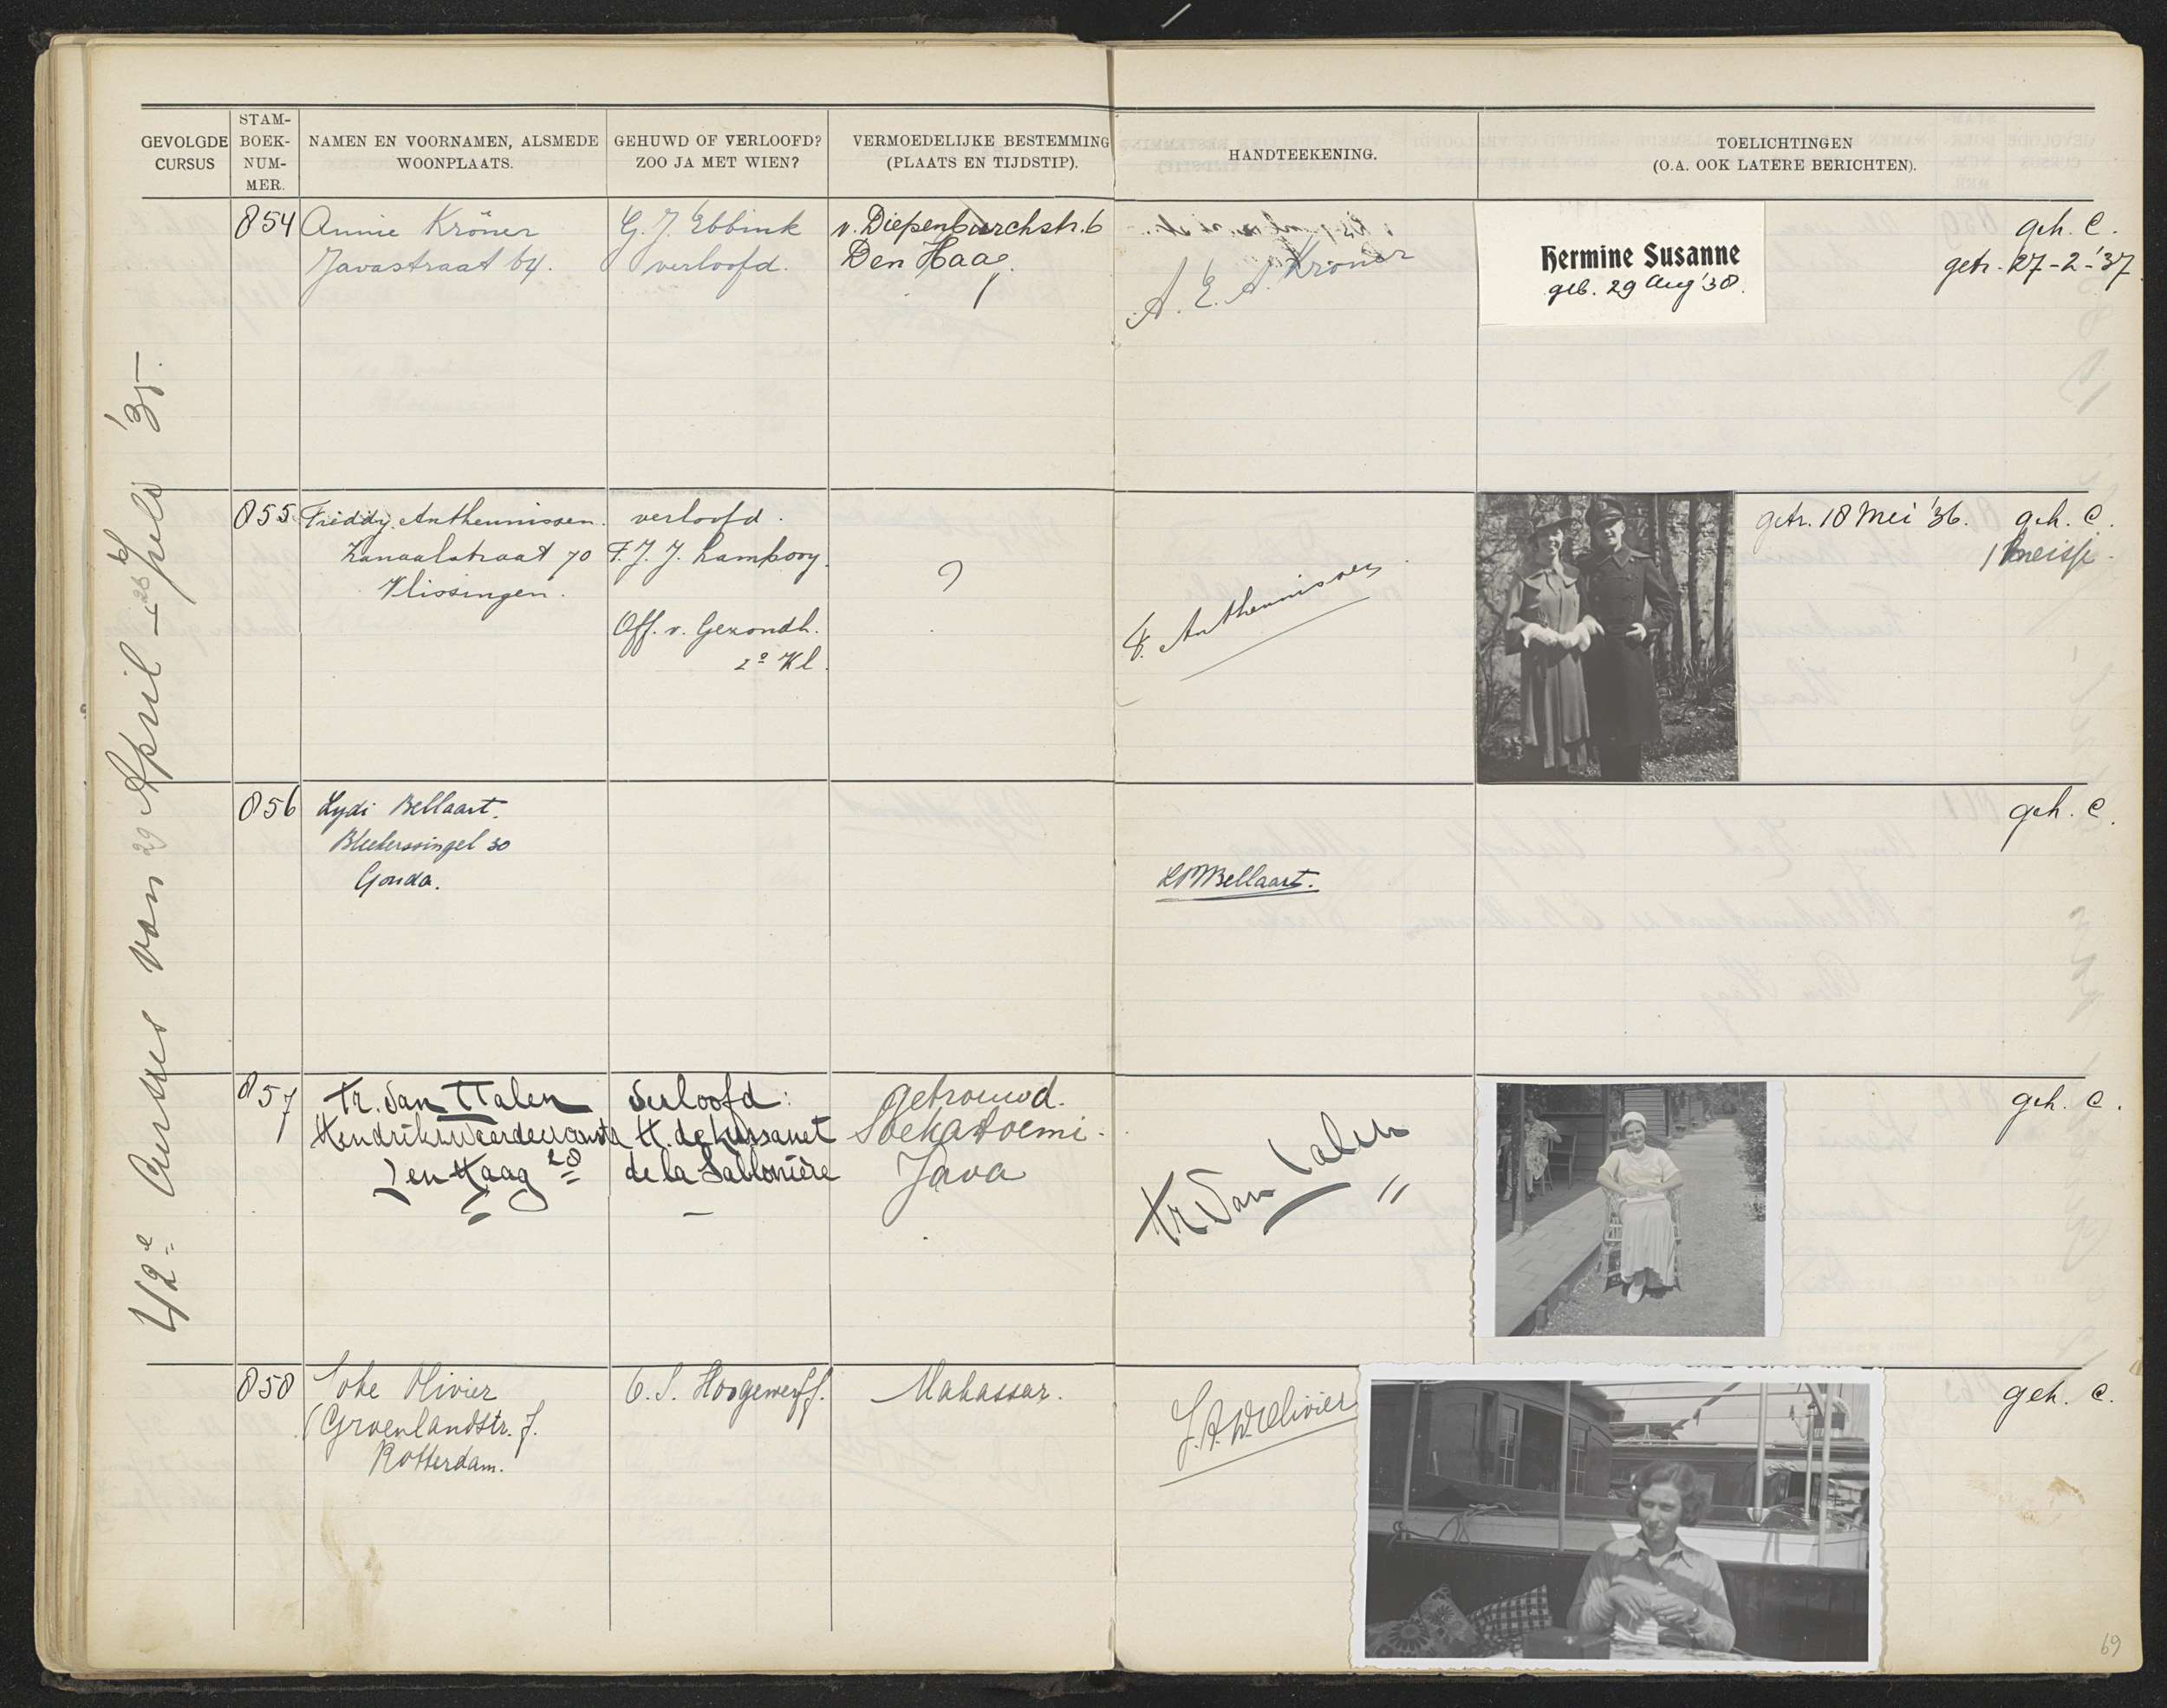 GEVOLGDE CURSUS
STAM-BOEK-NUM-MER.
NAMEN EN VOORNAMEN, ALSMEDE WOONPLAATS.
GEHUWD OF VERLOOFD? ZOO JA MET WIEN?
VERMOEDELIJKE BESTEMMING (PLAATS EN TIJDSTIP).
HANDTEEKENING.
TOELICHTINGEN
(O.A. OOK LATERE BERICHTEN).
42e Cursus van 29 April - 26 Juli '35.
854
Annie Kröner
Javastraat 64.
G. J. Ebbink
verloofd.
v. Diepenburchstr. 6
Den Haag
A. E. A. Kröner
Hermine Susanne
geb. 29 Aug '38.
geh. C.
getr. 27-2-'37
855
Friddy Antheunissen.
Kanaalstraat 70
Vlissingen.
verloofd.
F. J. J. Lampooy.
Off. v. Gezondh.
2e Kl.
?
F. Antheunissen
getr. 18 Mei '36.
geh. C.
1 meisje.
856
Lydi Bellaart.
Bleekerssingel 30
Gouda.
Bellaart.
geh. C.
857
Tr. van Halen
28
Den Haag
Verloofd:
de la Sablonière
getrouwd.
Soekaboemi.
Java
geh. C.
858
Joke Olivier
Groenlandstr. 7.
Rotterdam.
C. S. Hoogewerff.
Makassar.
J. A. W. Olivier
geh. C.
69